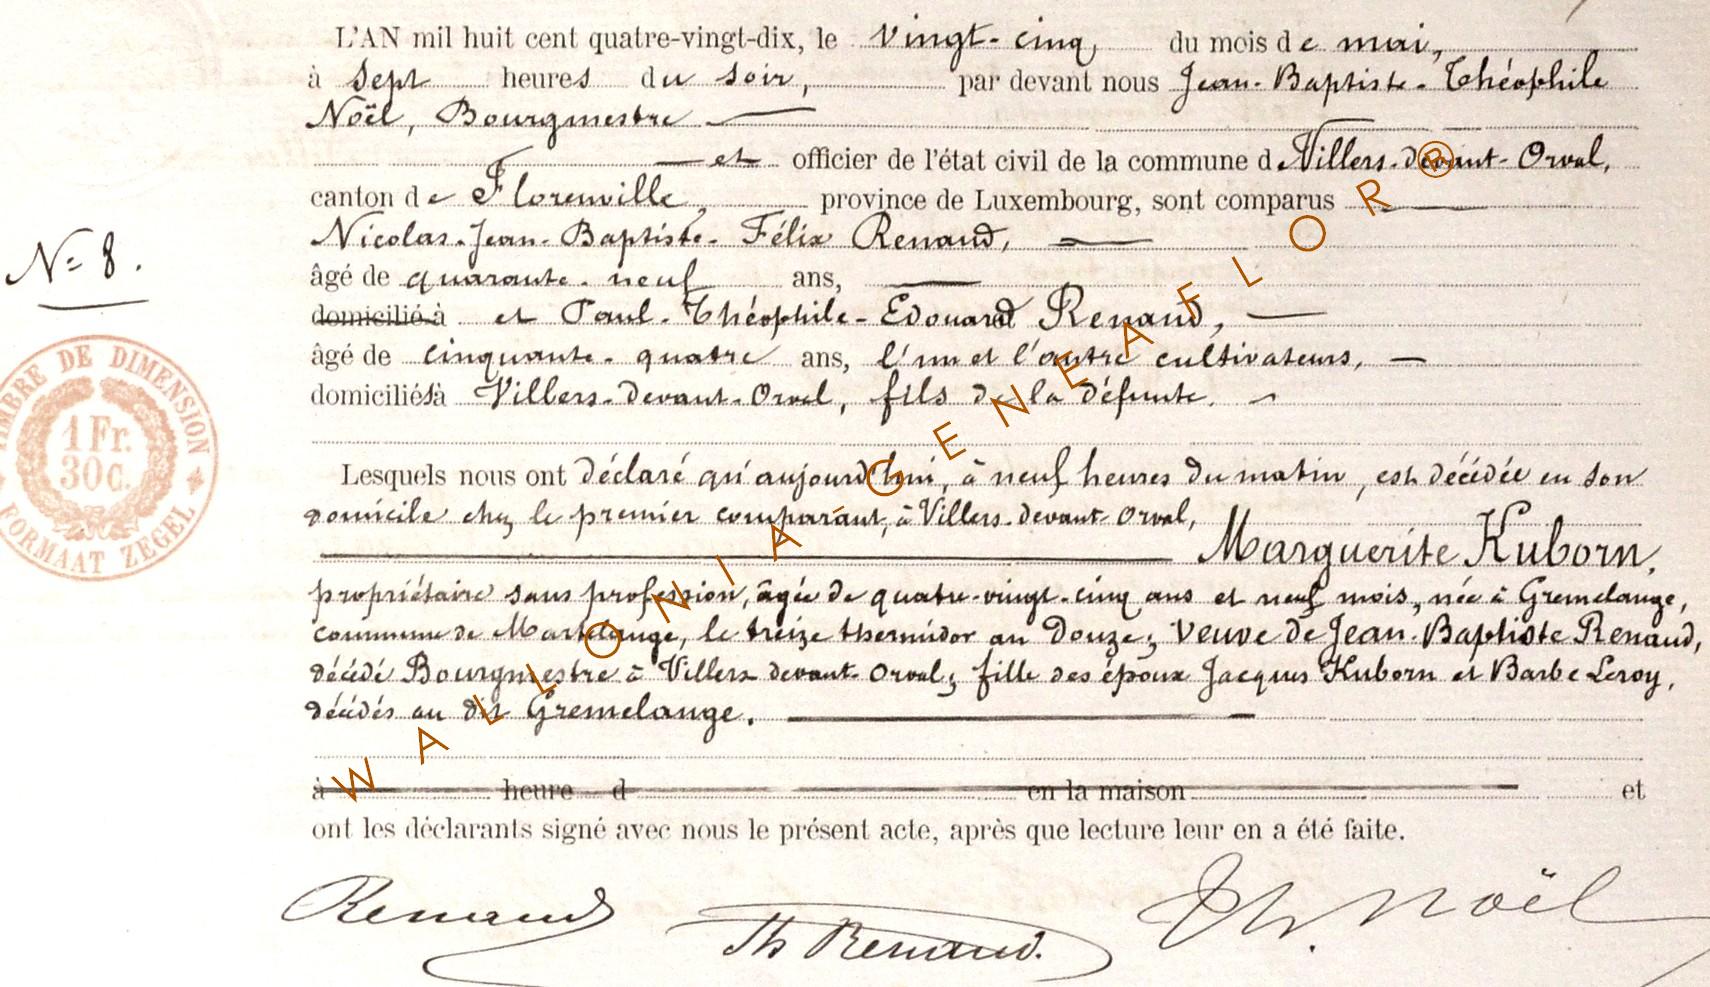 L'AN mil huit cent quatre-vingt-dix, le vingt-cinq, du mois de mai,
à sept heures du soir, par devant nous Jean-Baptiste-Théophile
Noël, Bourgmestre
et officier de l'état civil de la commune de Villers-devant-Orval,
canton de Florenville, province de Luxembourg, sont comparus
Nicolas-Jean-Baptiste-Félix Renaud,
N° 8.
âgé de quarante-neuf ans,
domicilié à et Paul-Théophile-Edouard Renaud,
âgé de cinquante-quatre ans, l'un et l'autre cultivateurs,
domiciliés à Villers-devant-Orval, fils de la défunte.
TIMBRE DE DIMENSION
1 Fr.
30 c.
FORMAAT ZEGEL
Lesquels nous ont déclaré qu'aujourd'hui, à neuf heures du matin, est décédée en son
domicile chez le premier comparant, à Villers-devant-Orval,
Marguerite Kuborn,
propriétaire sans profession, âgée de quatre-vingt-cinq ans et neuf mois, née à Gremelange,
commune de Martelange, le treize thermidor an Douze; Veuve de Jean-Baptiste Renaud,
décédé Bourgmestre à Villers devant-Orval; fille des époux Jacques Kuborn et Barbe Leroy,
décédés au dit Gremelange.
à heure d en la maison et
ont les déclarants signé avec nous le présent acte, après que lecture leur en a été faite.
Renaud Th Renaud. Th. Noël
WALLONIA GENEAFLOR ®